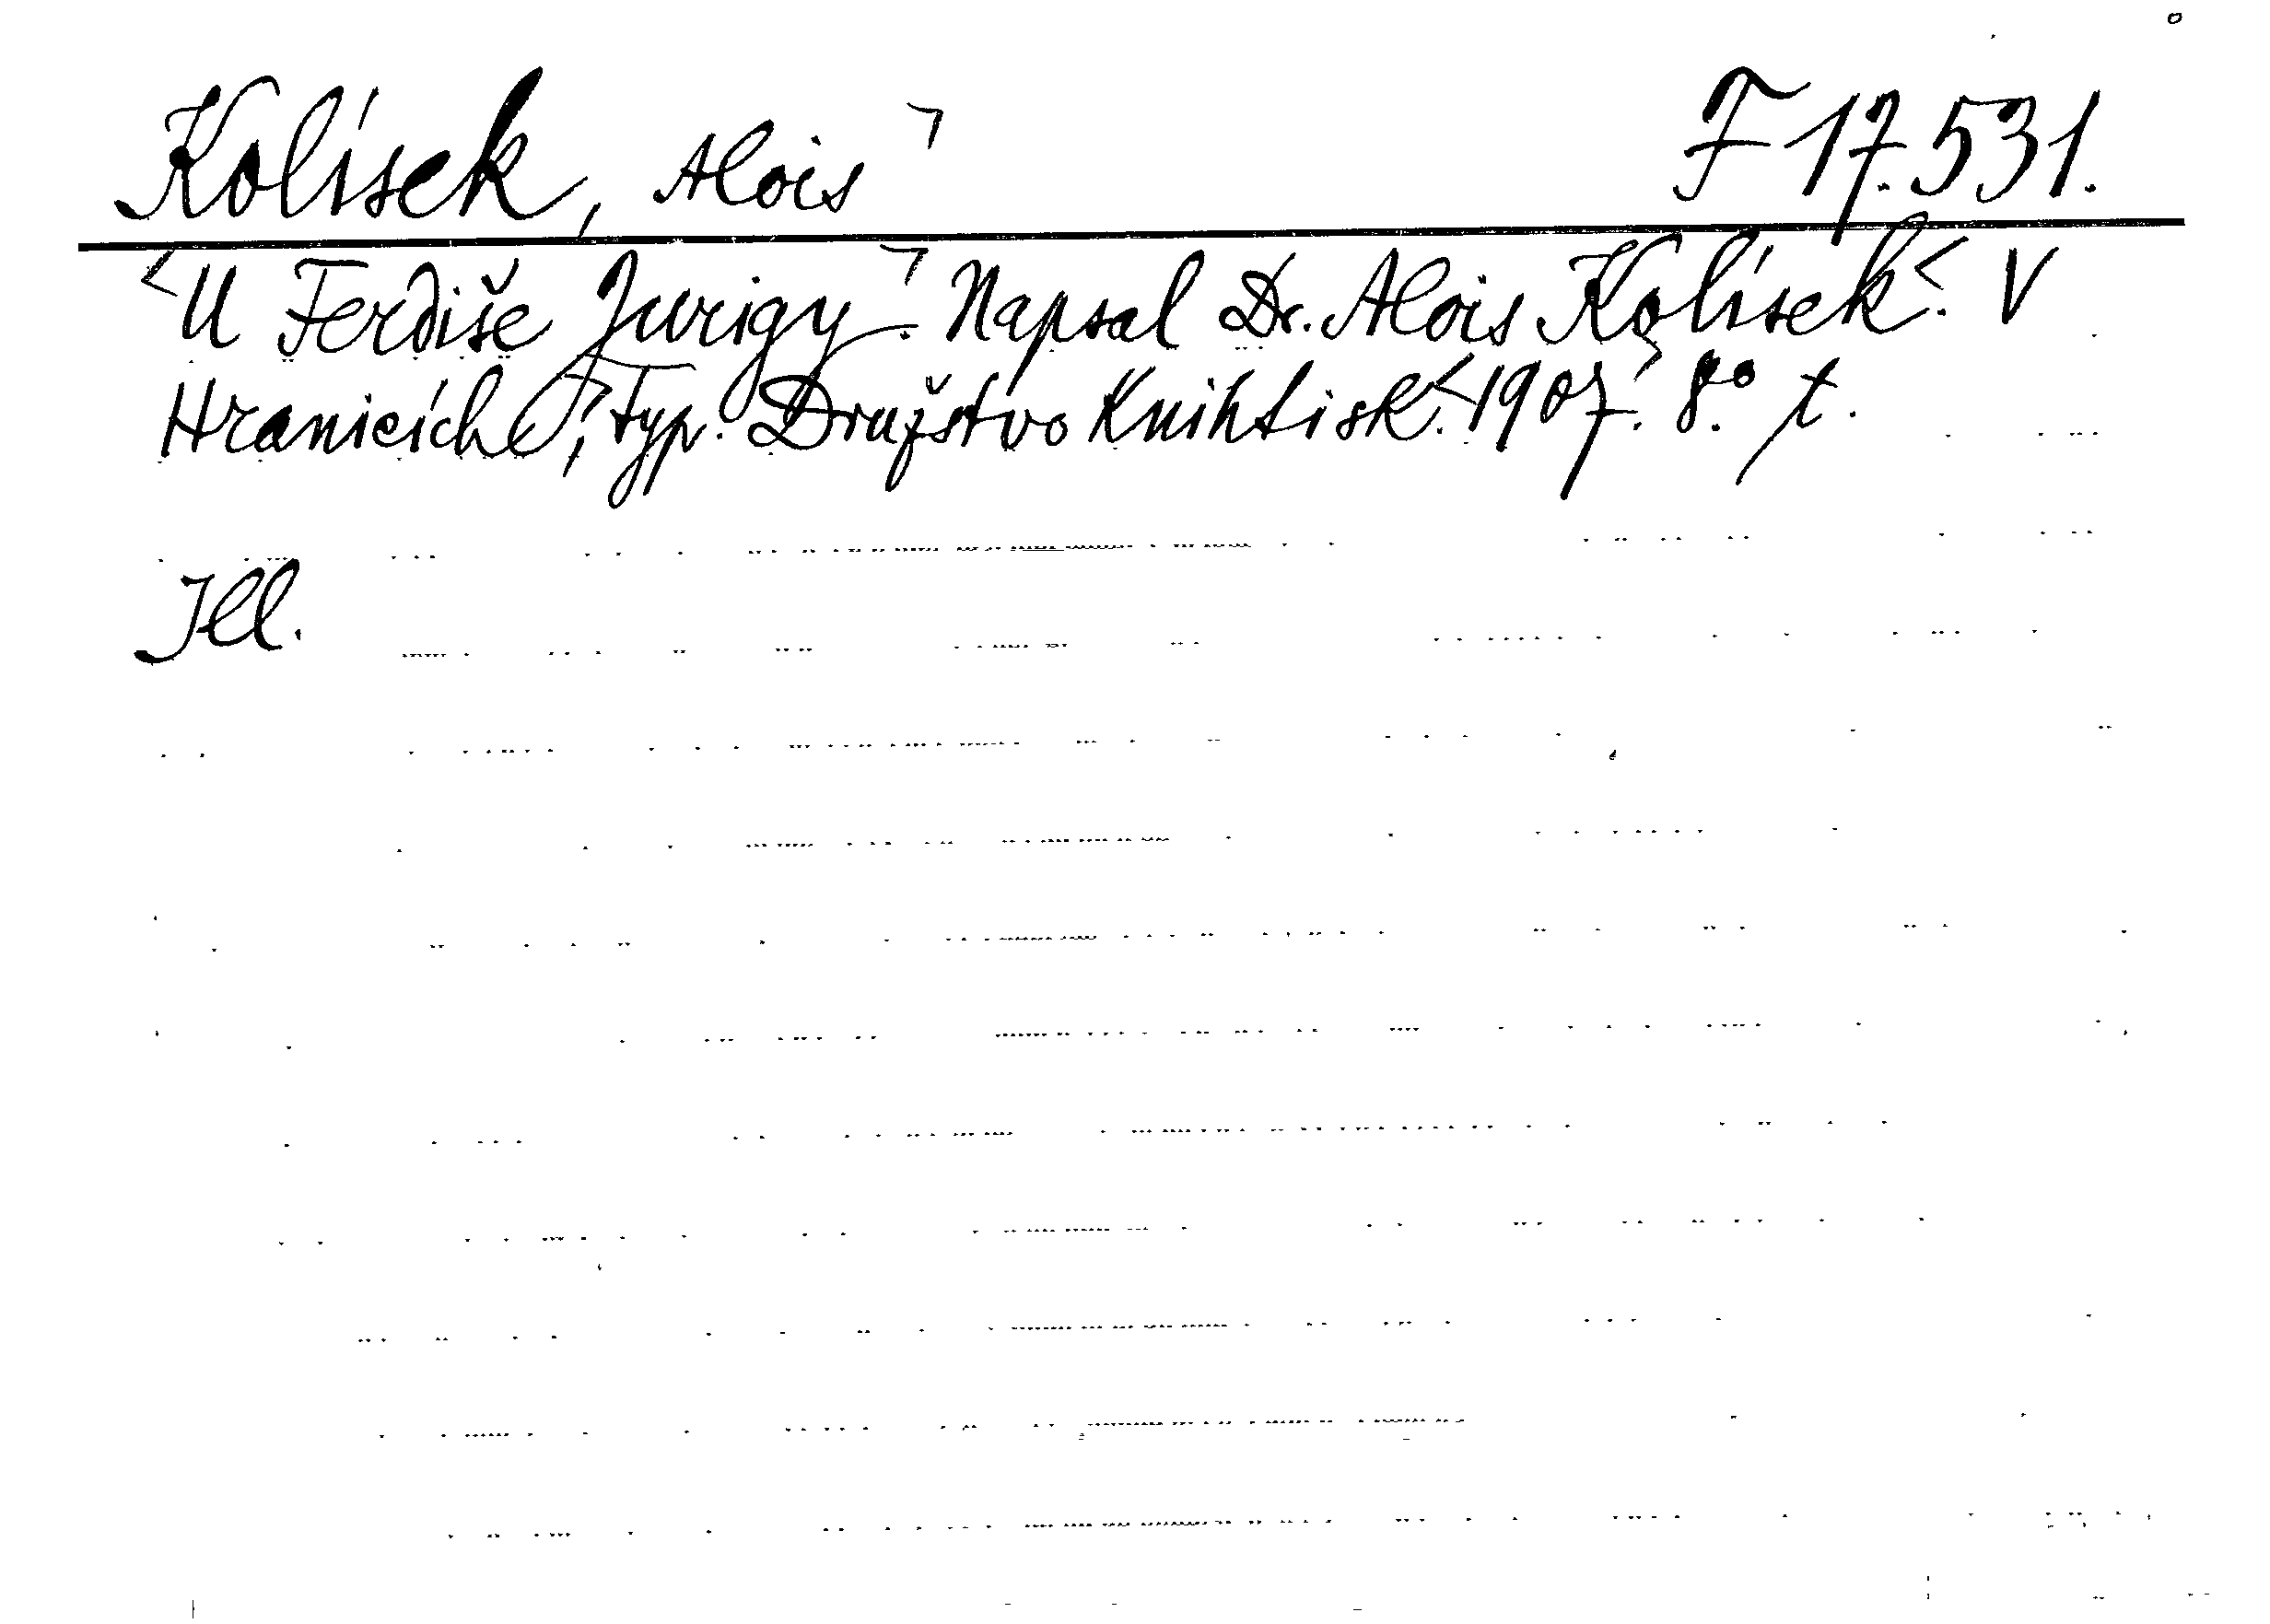 Kolísek, Alois F 17.531.
U Ferdiše Jurigy. Napsal Dr. Alois Kolísek. V
Hranicích, Typ. Družstvo Knihtisk. 1907. 8.° t.
Ill.